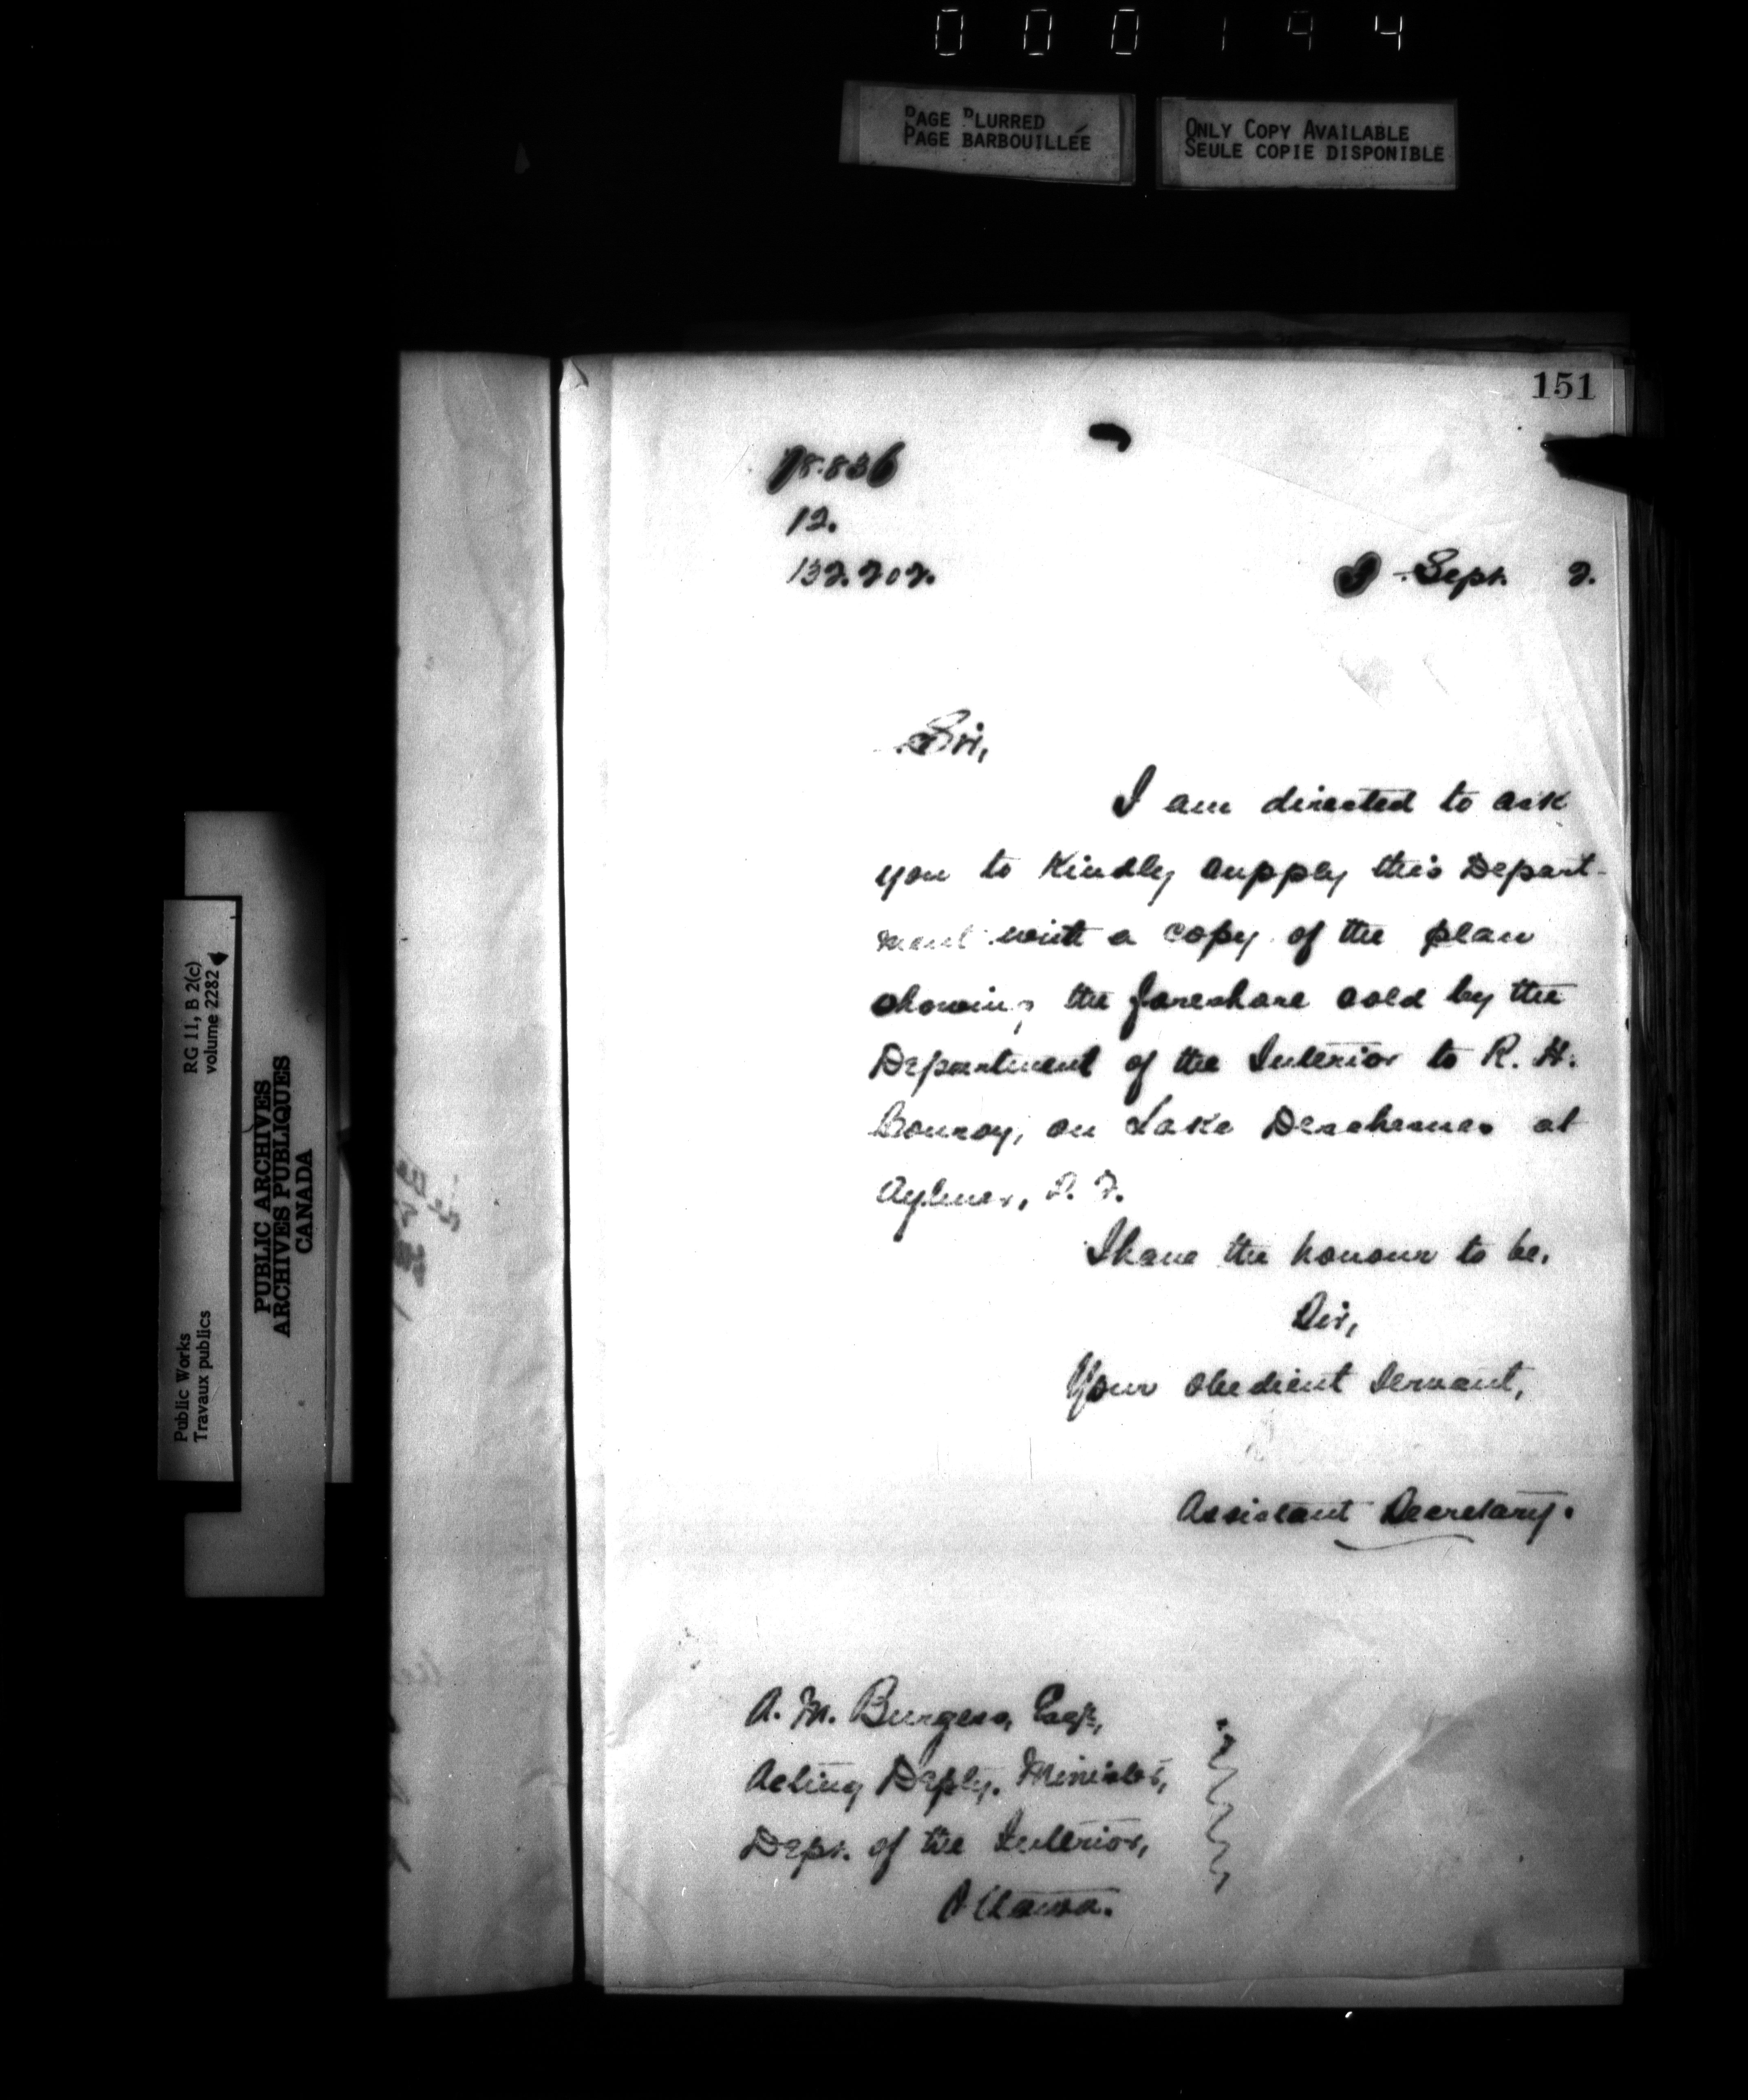 000194
PAGE BLURRED
PAGE BARBOUILLÉE
ONLY COPY AVAILABLE
SEULE COPIE DISPONIBLE
RG 11, B 2(c)
volume 2282
Public Works
Travaux publics
PUBLIC ARCHIVES
ARCHIVES PUBLIQUES
CANADA
151
12.
Sept. 2.
Sir,
I am directed to ask
you to Kindly supply this Depart-
ment with a copy of the plan
showing the foreshore sold by the
Department of the Interior to R. H.
on Lake Deschenes at
Aylmer,
I have the honour to be,
Sir,
Your obedient Servant,
Assistant Secretary.
A. M. Burgess, Esqr.,
Acting Depty. Minister,
Dept. of the Interior,
Ottawa.